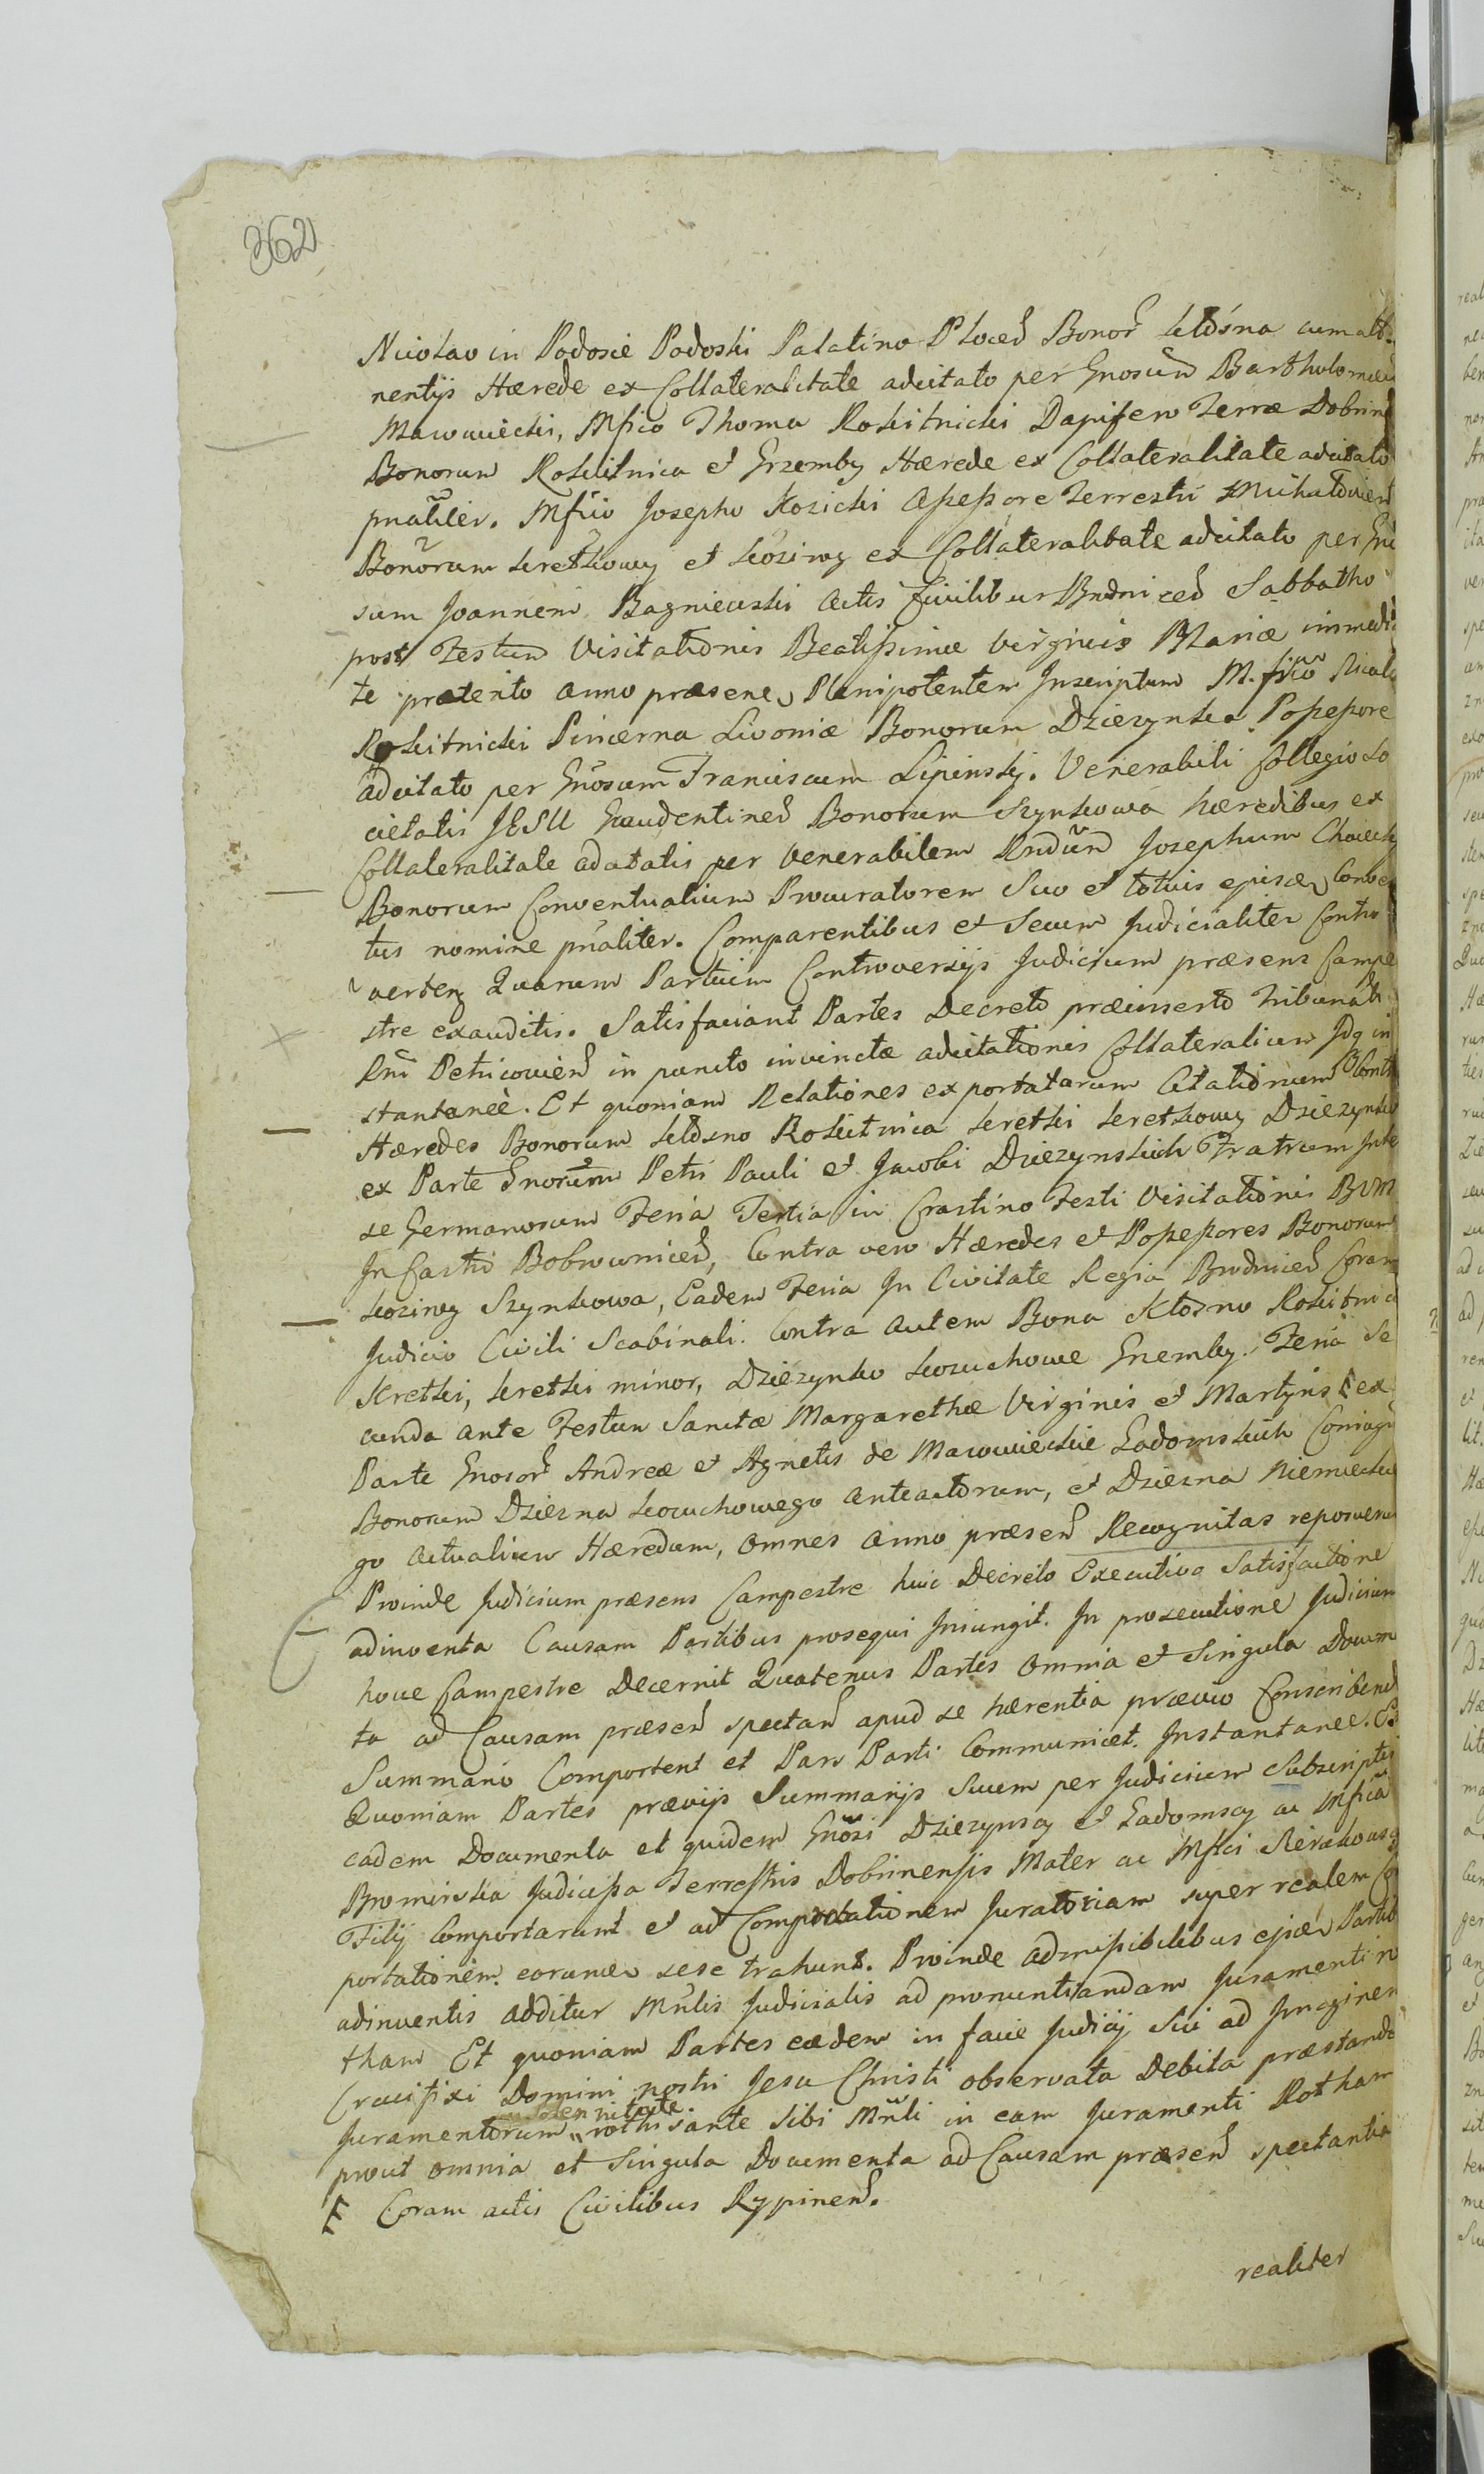 362
Nicolao in Podosie Podoski Palatino Ploceñ Bonoř Kłośna cum atti-
nentijs Hærede ex Collateralitate adcitato per Gnosum Bartholomæu
Marowiecki, Mfico Thoma Rokitnicki Dapifero Terræ Dobrinẽ
Bonorum Rokitnica et Grzemby Hærede ex Collateralitate adcitato
pnaliter. Mfico Josepho Kozicki Assessore Terrestri Michałovieñ
Bonorum kretkowy et kozirog ex Collateralitate adcitato per Gno
sum Joannem Bagniewski Actis Civilibus Brodniceñ Sabbatho
post Festum Visitationis Beatissimæ Virginis Mariæ immedia
te præterito anno præsene, Plenipotentem Inscriptum M.fico Nicola
Rokitnicki Pincerna Livoniæ Bonorum Dziezynko Possessore
adcitato per Gnosum Franciscum Lipinsky. Venerabili Collegio So
cietatis JESU Graudentineñ Bonorum Szynkowa hæredibus ex
Collateralitate adcitatis per Venerabilem Rndum Josephum Choieck
Bonorum Conventualium Procuratorem Suo et totuis episæ, Conven
tus nomine pnaliter. Comparentibus et Secum Judicialiter Contro
verteñ Quarum Partium Controversijs Judicium præsens Campe
stre exauditis. Satisfaciant Partes Decreto præinserto Tribunali
Rni Petricovieñ in puncto invinctæ adcitationis Collateralium Idq in
stantaneè. Et quoniam Relationes exportatarum Citationum Contra
Hæredes Bonorum kłosno Rokitnica kretki kretkowy Dziezynko
ex Parte Gnorum Petri Pauli et Jacobi Dziezynskich Fratrum Inte
se Germanorum Feria Tertia in Crastino Festi Visitationis BVM
In Castri Bobrowniceñ, Contra vero Hæredes et Possessores Bonorum
kozirog Szynkowa, Eadem Feria In Civitate Regia Brodniceñ Coram
Judicio Civili Scabinali. Contra autem Bona Kłosno Rokitnica
Kretki, kretki minor, Dziezynko kozuchowe Gremby. Feria Se
cunda ante Festum Sanctæ Margarethæ Virginis et Martyris ex
Parte Gnosoř Andreæ et Agnetis de Marowieckie Ladomskich Coniugũ
Bonorum Dziezna kozuchowego anteactorum, et Dziezna Niemiecke
go actualium Hæredum, omnes anno præseñ Recognitas reposueru
Proinde Judicium præsens Campestre huic Decreto Executiva Satisfactione
adinventa Causam Partibus prosequi Iniungit. In prosecutione Judicium
hocce Campestre Decernit Quatenus Partes Omnia et Singula Docum
ta ad Causam præseñ spectañ apud se hærentia prævio Conscribend
Summario Comportent et Pars Parti Communicet. Instantanee. Et
Quoniam Partes prævijs Summarijs Suum per Judicium Subscriptis
eadem Documenta et quidem Gnosi Dziezynscy et Ladomscy ac Mfica
Bromirska Judicissa Terrestris Dobrinensis Mater ac Mfici Sierakowscy
Filij Comportarunt et ad Comportationem Juratoriam super realem Co
portationem. earumes sese trahunt. Proinde admissibilibus ejsæ, Partib
adinventis additur Mnlis Judicialis ad pronuntiandam Juramenti ro
tham Et quoniam Partes eædem in facie Judicij Sui ad Imaginem
Crucifixi Domini nostri Jesu Christi observata Debita præstando
solennitate
Juramentorum „ rothisante sibi Mnli in eam Juramenti Rotham
prout omnia et Singula Documenta ad Causam præseñ spectantia
E Coram actis Civilibus Rypineñ.
realiter